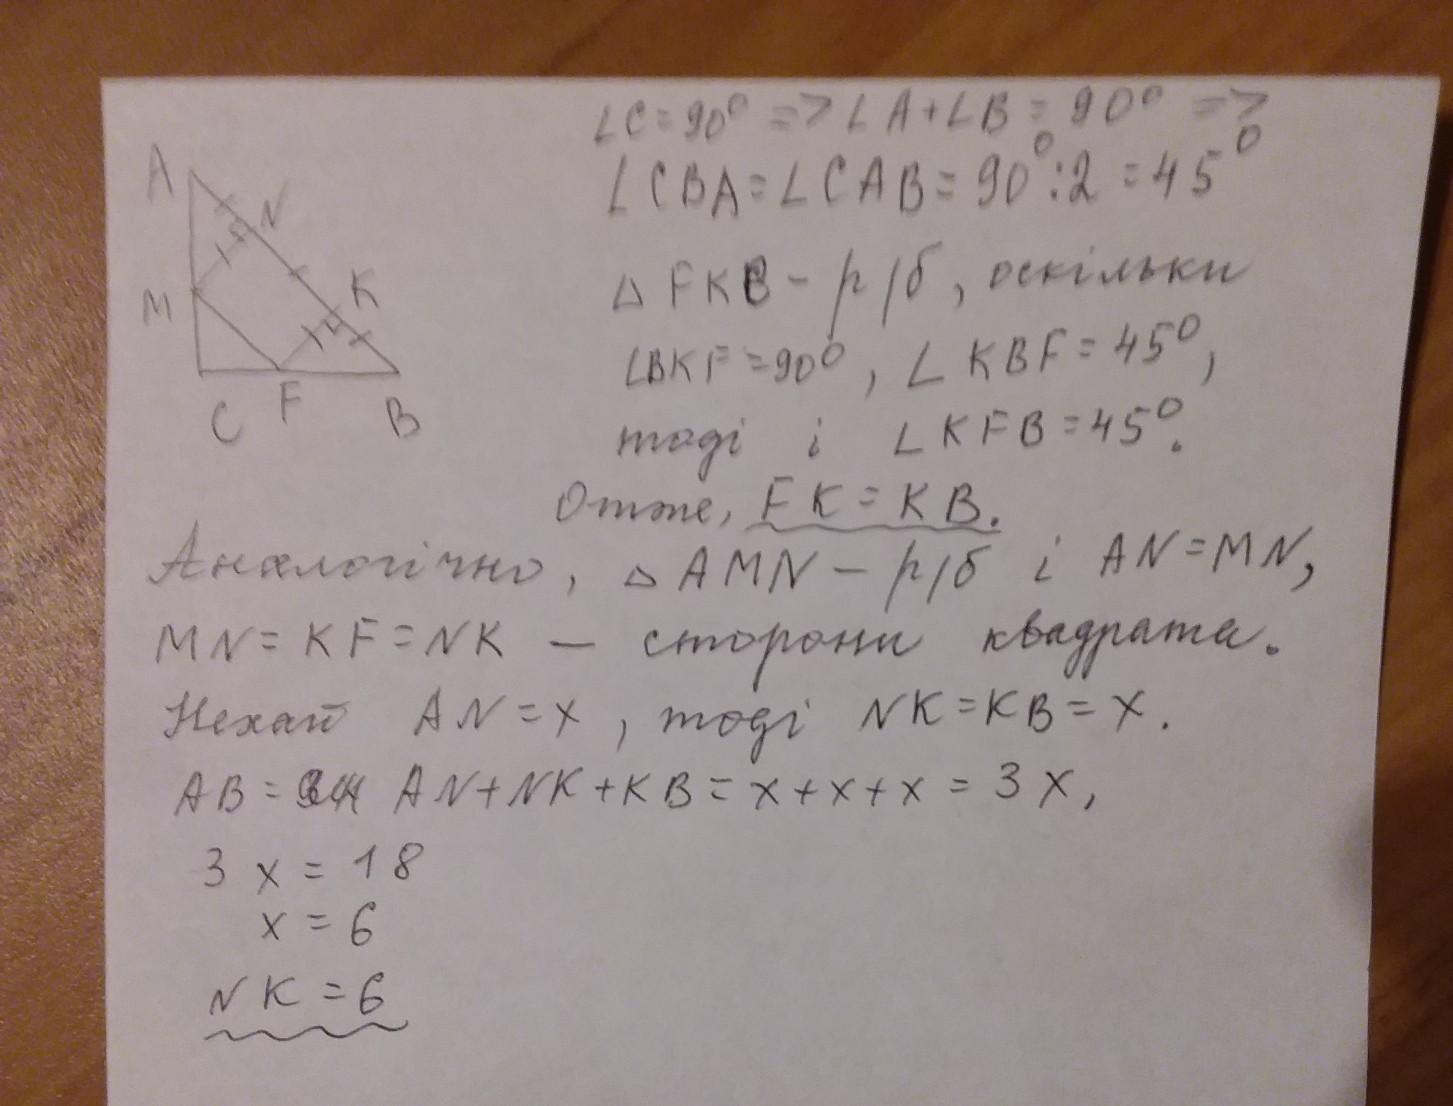 ∠C=90° => ∠A+∠B=90° =>
∠CBA=∠CAB=90°:2=45°
A
N
K
M
C
F
B
△ FKB - р/б, оскільки
∠BKF=90°, ∠KBF=45°,
тоді і ∠KFB=45°.
Отже, FK=KB.
Аналогічно, △AMN – р/б і AN=MN,
MN=KF=NK — сторони квадрата.
Нехай AN=x, тоді NK=KB=x.
AB= AN+NK+KB=x+x+x=3x,
3x=18
x=6
NK=6